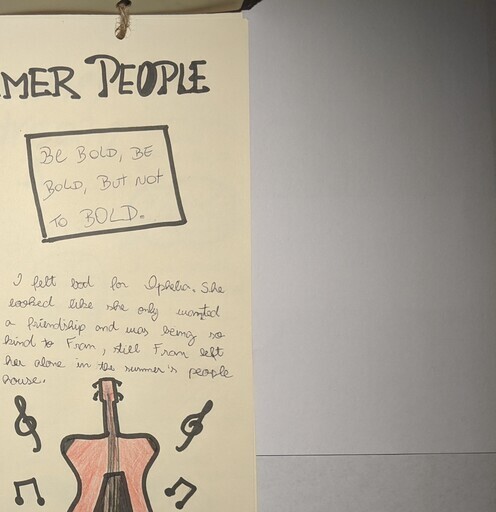 MER PEOPLE
BE BOLD, BE
BOLD, BUT NOT
TO BOLD.
I felt bad for Ophelia. She
looked like she only wanted
a friendship and was being so
kind to Fran, still Fran left
her alone in the summer's people
house.